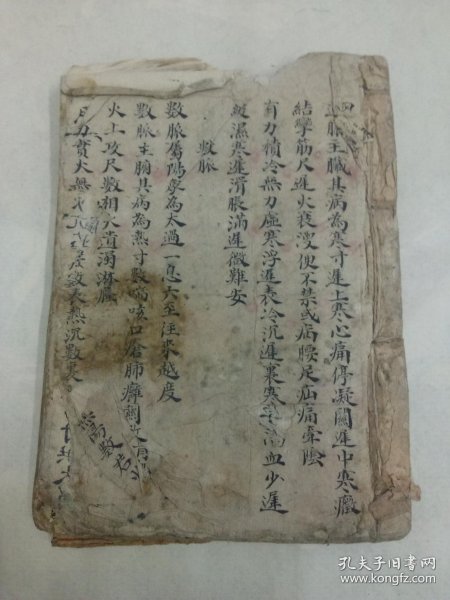 脉主臟其病為寒寸遲上寒心痛停凝關遲中寒癥
結攣筋尺遲火衰溲便不禁或病腰足疝痛牽陰
有力積冷無力虛寒浮遲表冷沉遲裏寒血少遲
緩濕寒遲滑脹滿遲微難安
數脉
數脉屬陽象為太過一息六至往來越度
數脉主腑其病為熱寸數喘咳口瘡肺癰關
火上攻尺數相火遺濁淋癃
力實火無火數表熱沉數裏
數君
孔夫子旧书网
www.kongfz.com